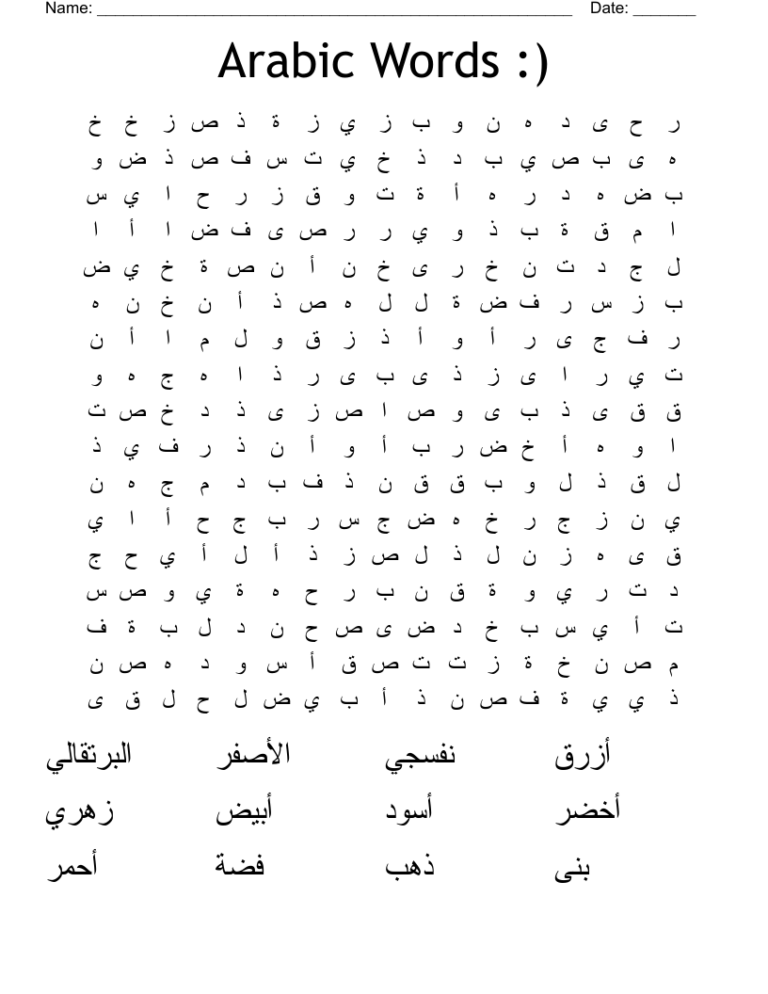 Name: ____________________ Date: _______
Arabic Words :)
ر ح ى د ه ن و ب ز ي ز ة ذ ص ز خ خ
ه ى ب ص ي ب د ذ خ ي ت س ف ص ذ ض و
ب ض ه د ر ه أ ة ت و ق ز ر ح ا ي س
ا م ق ة ب ذ و ي ر ر ص ى ف ض ا أ ا
ل ج د ت ن خ ر ى خ ن أ ن ص ة خ ي ض
ب ز س ر ف ض ة ل ل ه ص ذ أ ن خ ن ه
ر ف ج ى ر أ و أ ذ ز ق و ل م ا أ ن
ت ي ر ا ى ز ذ ى ب ى ر ذ ا ه ج ه و
ق ق ى ذ ب ى و ص ا ص ز ى ذ د خ ص ت
ا و ه أ خ ض ر ب أ و أ ن ذ ر ف ي ذ
ل ق ذ ل و ب ق ق ن ذ ف ب د م ج ه ن
ي ن ز ج ر خ ه ض ج س ر ب ج ح أ ا ي
ق ى ه ز ن ل ذ ل ص ز ذ أ ل أ ي ح ج
د ت ر ي و ة ق ن ب ر ح ه ة ي و ص س
ت أ ي س ب خ د ض ى ص ح ن د ل ب ة ف
م ص ن خ ة ز ت ت ص ق أ س و د ه ص ن
ذ ي ي ة ف ص ن ذ أ ب ي ض ل ح ل ق ى
أزرق نفسجي الأصفر البرتقالي
أخضر أسود أبيض زهري
بنى ذهب فضة أحمر